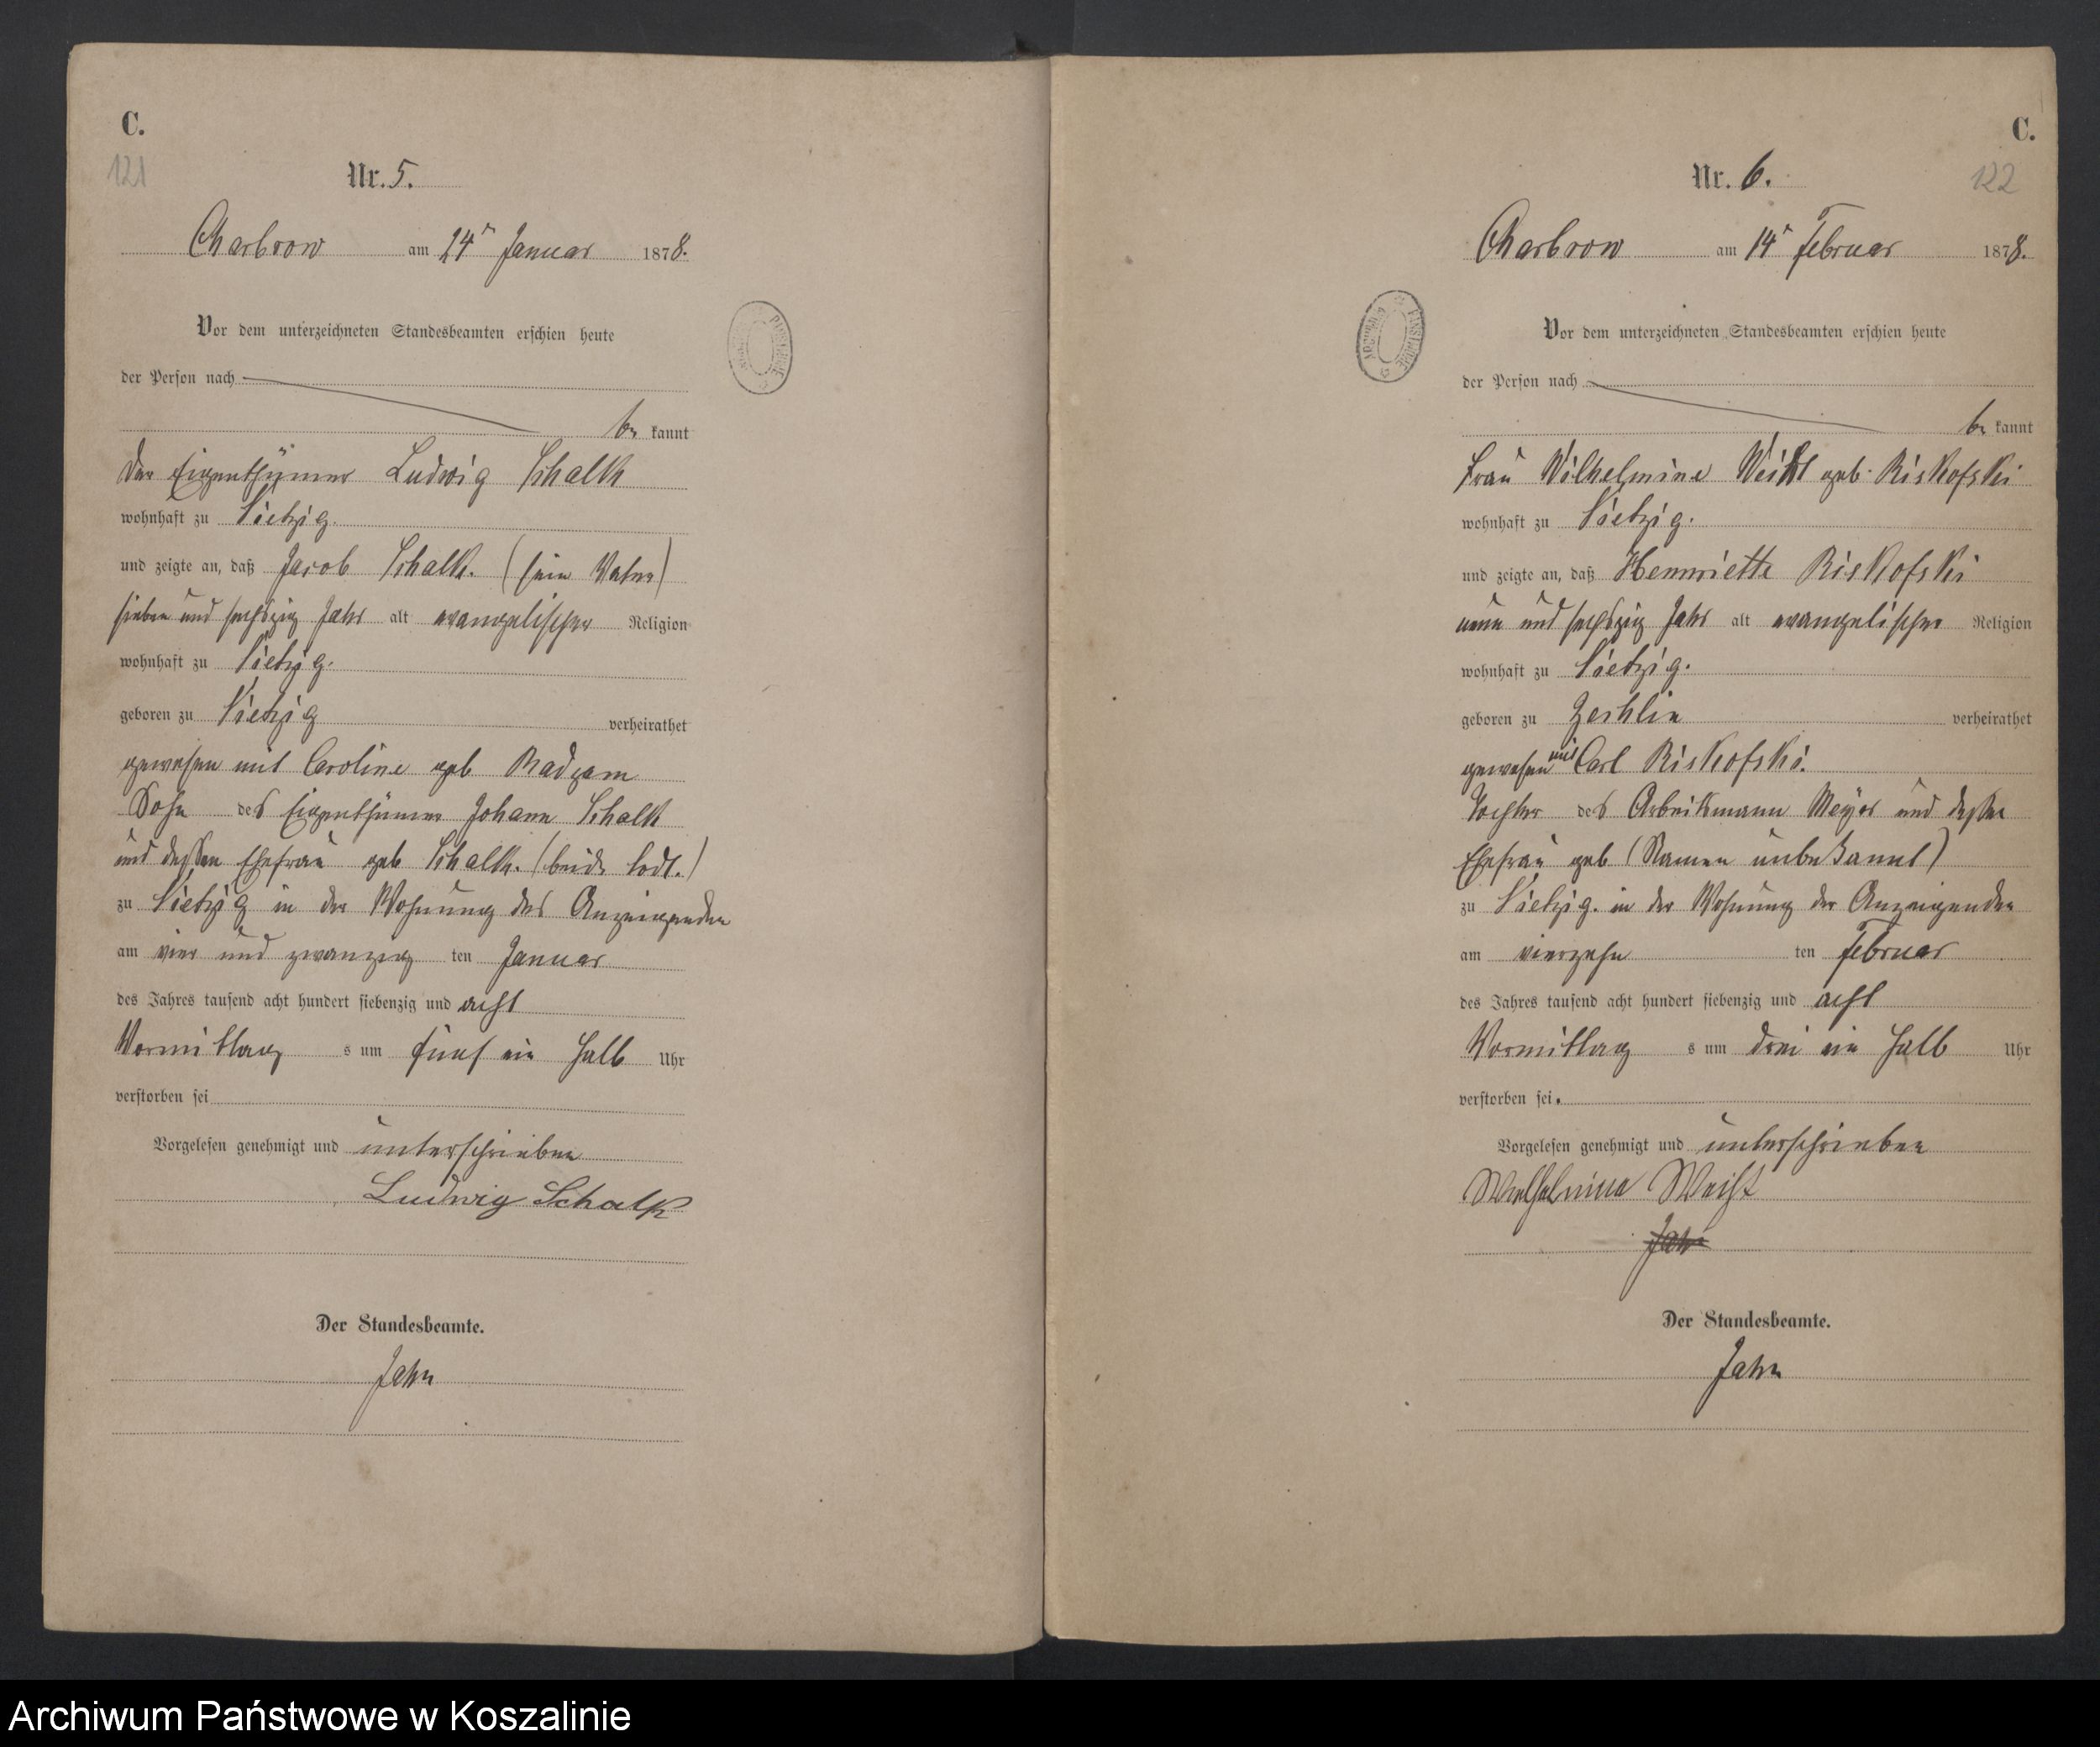 C.
121
Nr. 5.
Charbrow am 24ᵗ Januar 1878.
Vor dem unterzeichneten Standesbeamten erschien heute
der Person nach
be kannt
der Eigenthümer Ludwig Schalk
wohnhaft zu Vietzig.
und zeigte an, daß Jacob Schalk. (sein Vater)
sieben und sechszig Jahr alt evangelischer Religion
wohnhaft zu Vietzig.
geboren zu Vietzig verheirathet
gewesen mit Caroline geb Radzom
Sohn des Eigenthümer Johann Schalk
und dessen Ehefrau geb Schalk. (beide todt.)
zu Vietzig in der Wohnung des Anzeigenden
am vier und zwanzig ten Januar
des Jahres tausend acht hundert siebenzig und acht
Vormittag s um fünf ein halb Uhr
verstorben sei
Vorgelesen genehmigt und unterschrieben
Ludwig Schalk
Der Standesbeamte.
Jahn
C.
122
Nr. 6.
Charbrow am 14ᵗ Februar 1878.
Vor dem unterzeichneten Standesbeamten erschien heute
der Person nach
be kannt
Frau Wilhelmine geb. Riskofski
wohnhaft zu Vietzig.
und zeigte an, daß Hennriette Riskofski
neun und sechszig Jahr alt evangelischer Religion
wohnhaft zu Vietzig.
geboren zu Zechlin verheirathet
gewesen mit Carl Riskofski.
Tochter des Arbeitsmann Meyer und dessen
Ehefrau geb (Namen unbekannt)
zu Vietzig. in der Wohnung der Anzeigenden
am vierzehn ten Februar
des Jahres tausend acht hundert siebenzig und acht
Vormittag s um drei ein halb Uhr
verstorben sei.
Vorgelesen genehmigt und unterschrieben
Jahn
Der Standesbeamte.
Jahn
Archiwum Państwowe w Koszalinie